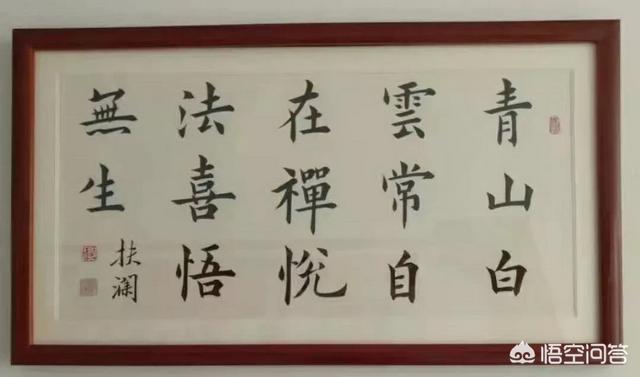 青山白
雲常自
在禪悅
法喜悟
無生
扶澜
悟空问答